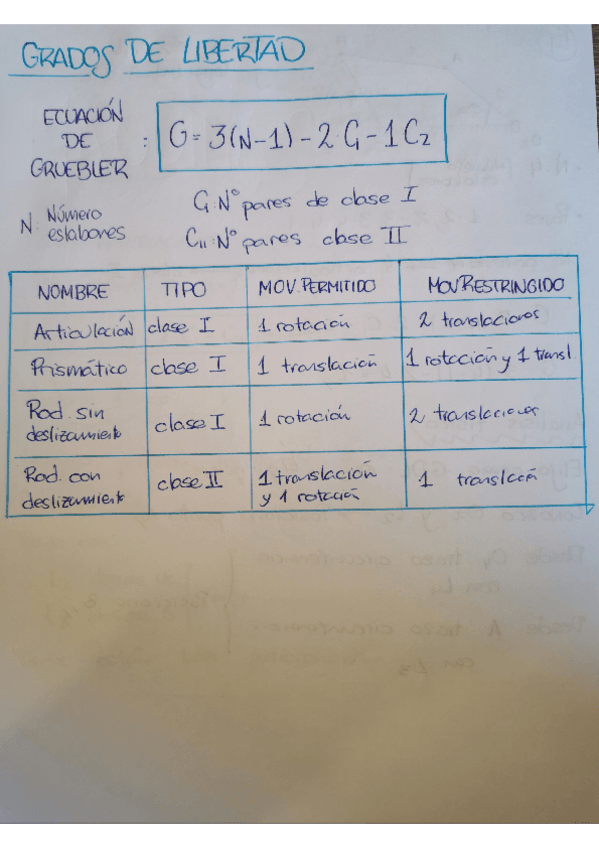 GRADOS DE LIBERTAD
ECUACIÓN
DE
GRUEBLER
: G = 3(N-1) - 2 C₁ - 1 C₂
N: Número
eslabones
C₁: Nº pares de clase I
C₁₁: Nº pares clase II
NOMBRE TIPO MOV. PERMITIDO MOV RESTRINGIDO
Articulación clase I 1 rotación 2 translaciones
Prismático clase I 1 translación 1 rotación y 1 transl.
Rod. sin
deslizamiento clase I 1 rotación 2 translaciones
Rod. con
deslizamiento clase II 1 translación
y 1 rotación 1 translción